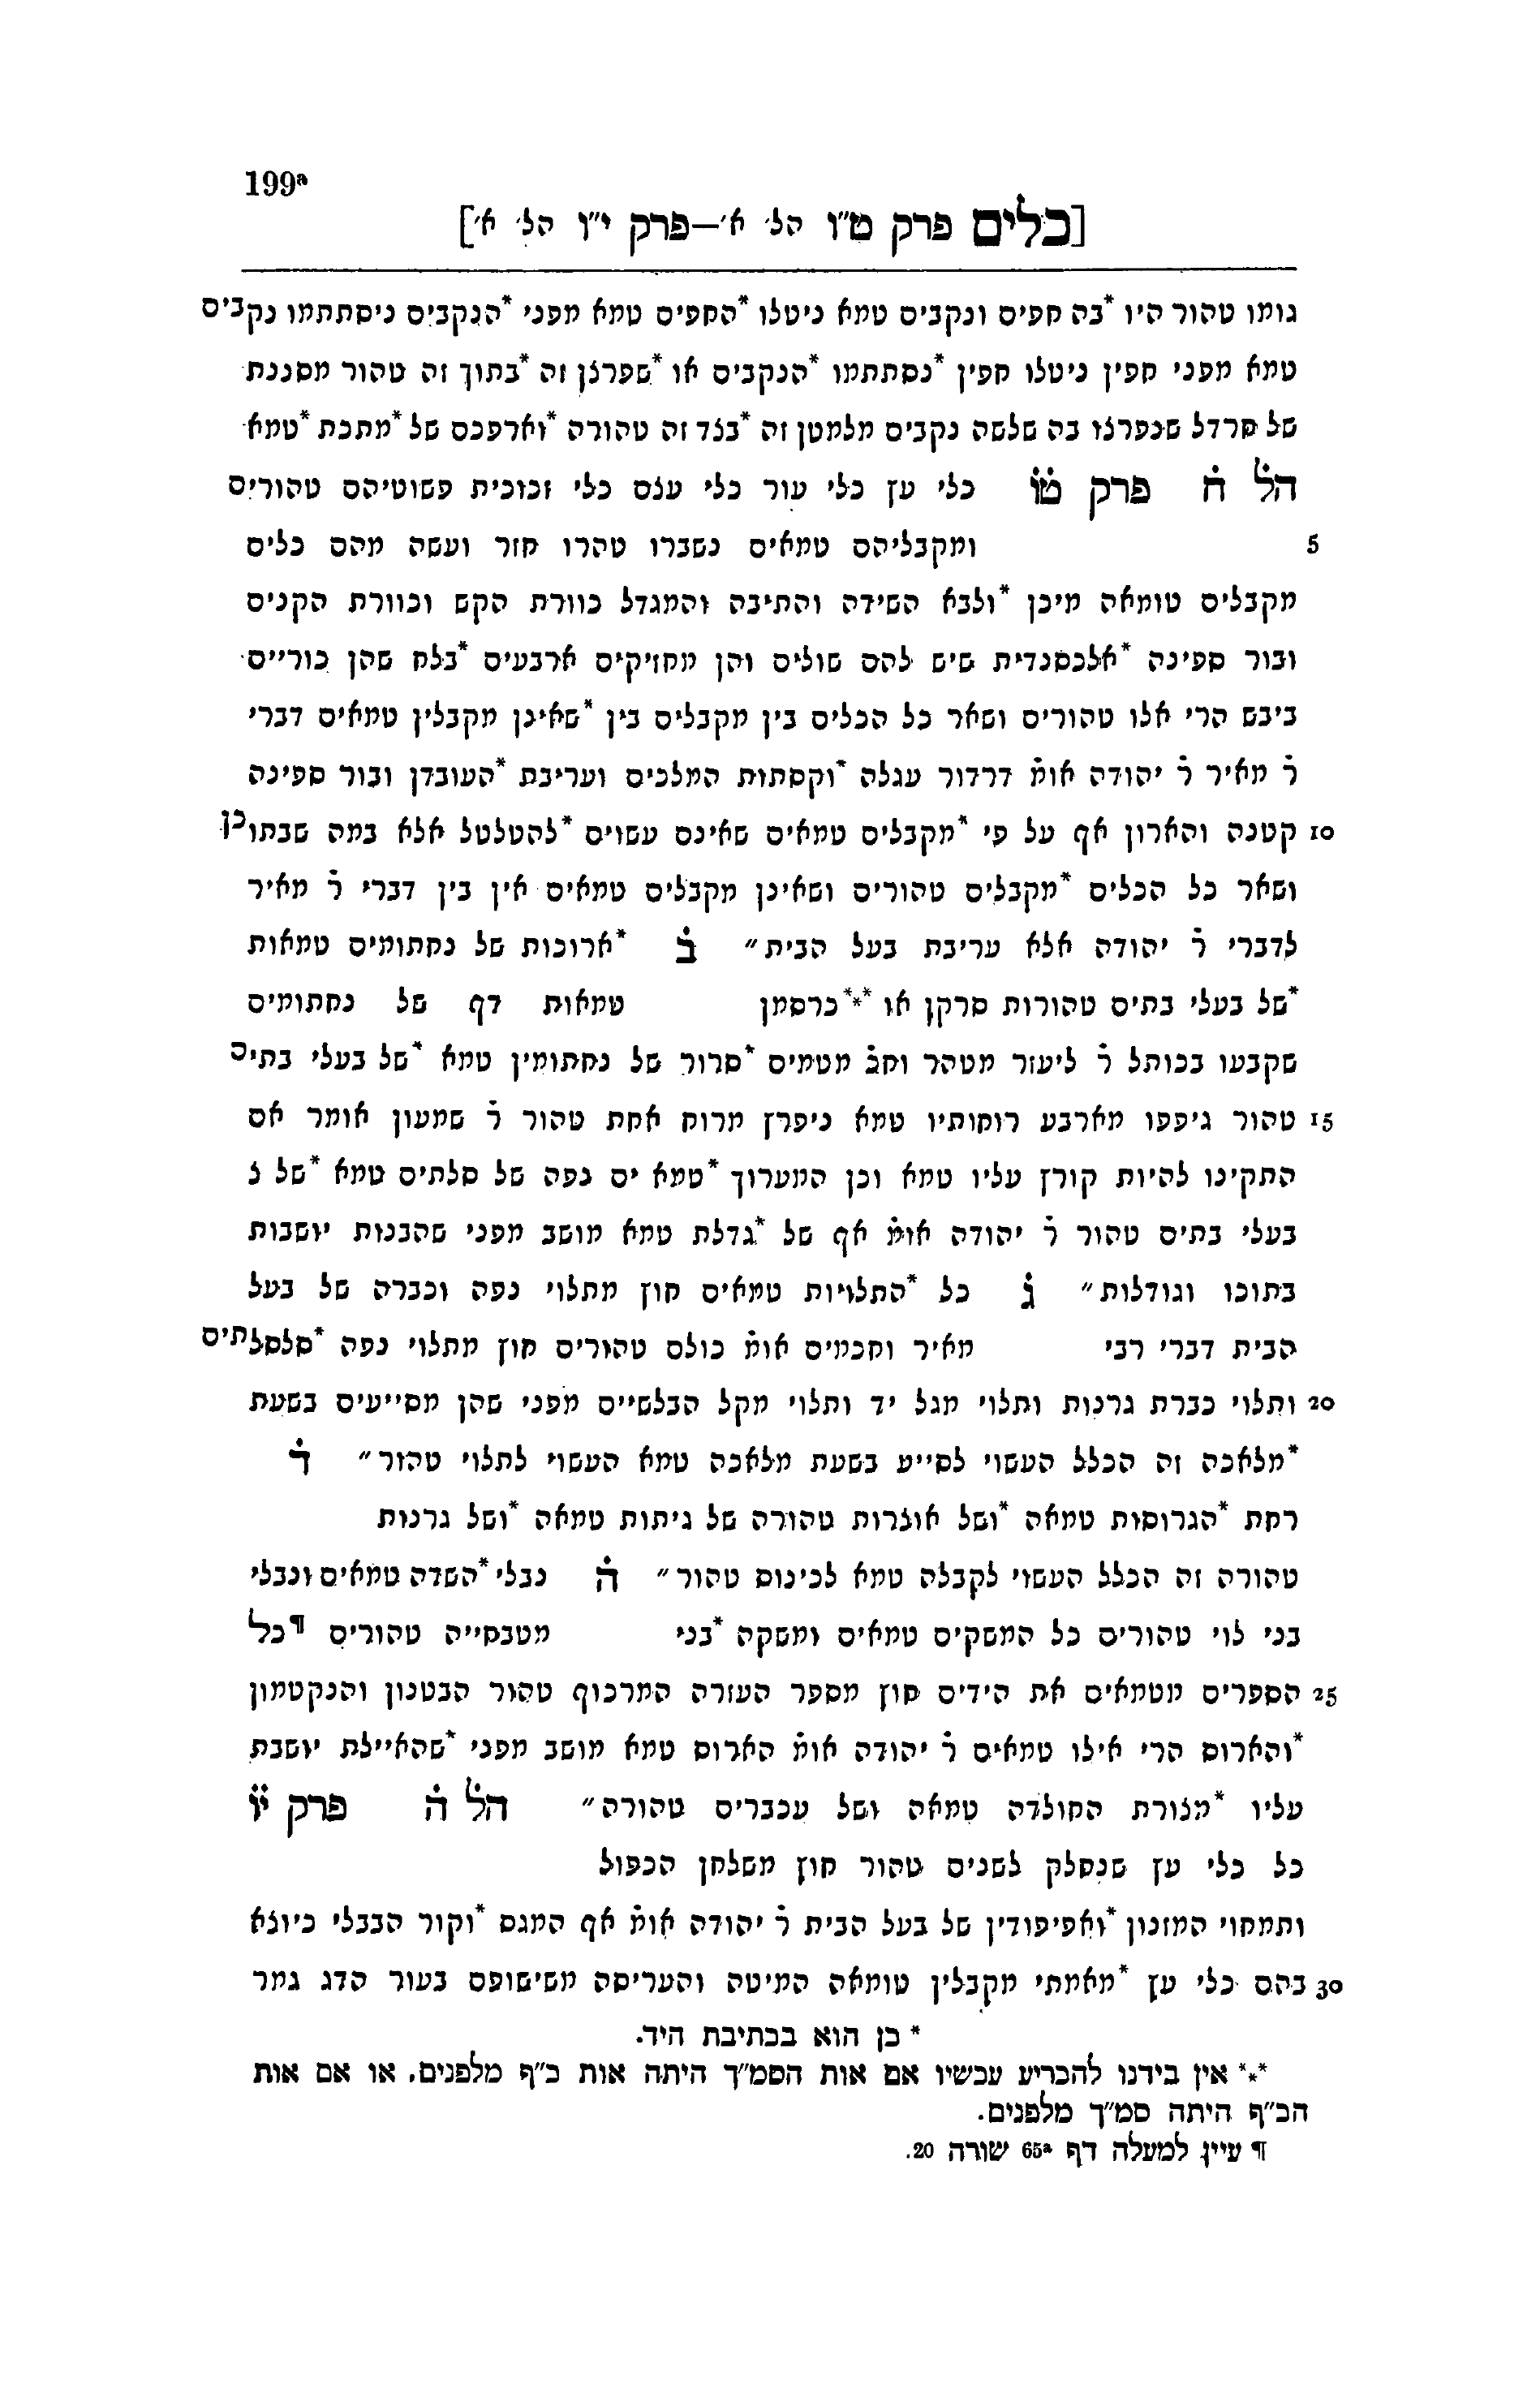 199ᵃ
[כלים פרק ט״ו הל׳ א׳—פרק י״ו הל׳ א׳]
גומו טהור היו *בה חפים ונקבים טמא ניטלו *החפים טמא מפני *הנקבים ניסתתמו נקבים
טמא מפני חפין ניטלו חפין *נסתתמו *הנקבים או *שפרצן זה *בתוך זה טהור מסננת
של חרדל שנפרצו בה שלשה נקבים מלמטן זה *בצד זה טהורה *וארפכס של *מתכת *טמא
הל ה פרק טו כלי עץ כלי עור כלי עצם כלי זכוכית פשוטיהם טהורים
5 ומקבליהם טמאים נשברו טהרו חזר ועשה מהם כלים
מקבלים טומאה מיכן *ולבא השידה והתיבה והמגדל כוורת הקש וכוורת הקנים
ובור ספינה *אלכסנדית שיש להם שולים והן מחזיקים ארבעים *בלח שהן כוריים
ביבש הרי אלו טהורים ושאר כל הכלים בין מקבלים בין *שאינן מקבלין טמאים דברי
ר̇ מאיר ר̇ יהודה אומ̇ דרדור עגלה *וקסתות המלכים ועריבת *העובדן ובור ספינה
10 קטנה והארון אף על פי *מקבלים טמאים שאינם עשוים *להטלטל אלא במה שבתוכן
ושאר כל הכלים *מקבלים טהורים ושאינן מקבלים טמאים אין בין דברי ר̇ מאיר
לדברי ר̇ יהודה אלא עריבת בעל הבית״ ב̇ *ארוכות של נחתומים טמאות
*של בעלי בתים טהורות סרקן או **כרסמן טמאות דף של נחתומים
שקבעו בכותל ר̇ ליעזר מטהר וחכ̇ מטמים *סרור של נחתומין טמא *של בעלי בתים
15 טהור גיפפו מארבע רוחותיו טמא ניפרץ מרוח אחת טהור ר̇ שמעון אומר אם
התקינו להיות קורץ עליו טמא וכן המערוך *טמא ים נפה של סלתים טמא *של צ
בעלי בתים טהור ר̇ יהודה אומ̇ אף של *גדלת טמא מושב מפני שהבנות יושבות
בתוכו וגודלות״ ג̇ כל *התלויות טמאים חוץ מתלוי נפה וכברה של בעל
הבית דברי רבי מאיר וחכמים אומ̇ כולם טהורים חוץ מתלוי נפה *סלסלתים
20 ותלוי כברת גרנות ותלוי מגל יד ותלוי מקל הבלשיים מפני שהן מסייעים בשעת
*מלאכה זה הכלל העשוי לסייע בשעת מלאכה טמא העשוי לתלוי טהור״ ד̇
רחת *הגרוסות טמאה *ושל אוצרות טהורה של גיתות טמאה *ושל גרנות
טהורה זה הכלל העשוי לקבלה טמא לכינוס טהור״ ה̇ נבלי *השדה טמאים ונבלי
בני לוי טהורים כל המשקים טמאים ומשקה *בני מטבחייה טהורים ¶כל
25 הספרים מטמאים את הידים חוץ מספר העזרה המרכוף טהור הבטנון והנקטמון
*והארוס הרי אילו טמאים ר̇ יהודה אומ̇ הארוס טמא מושב מפני *שהאיילת יושבת
עליו *מצורת החולדה טמאה ושל עכברים טהורה״ הל ה פרק יו
כל כלי עץ שנחלק לשנים טהור חוץ משלחן הכפול
ותמחוי המזנון *ואפיפודין של בעל הבית ר̇ יהודה אומ̇ אף המגס *וקור הבבלי כיוצא
30 בהם כלי עץ *מאמתי מקבלין טומאה המיטה והעריסה משישופם בעור הדג גמר
* כן הוא בכתיבת היד.
** אין בידנו להכריע עכשיו אם אות הסמ״ך היתה אות כ״ף מלפנים. או אם אות
הכ״ף היתה סמ״ך מלפנים.
¶ עיין למעלה דף 65ᵃ שורה 20.